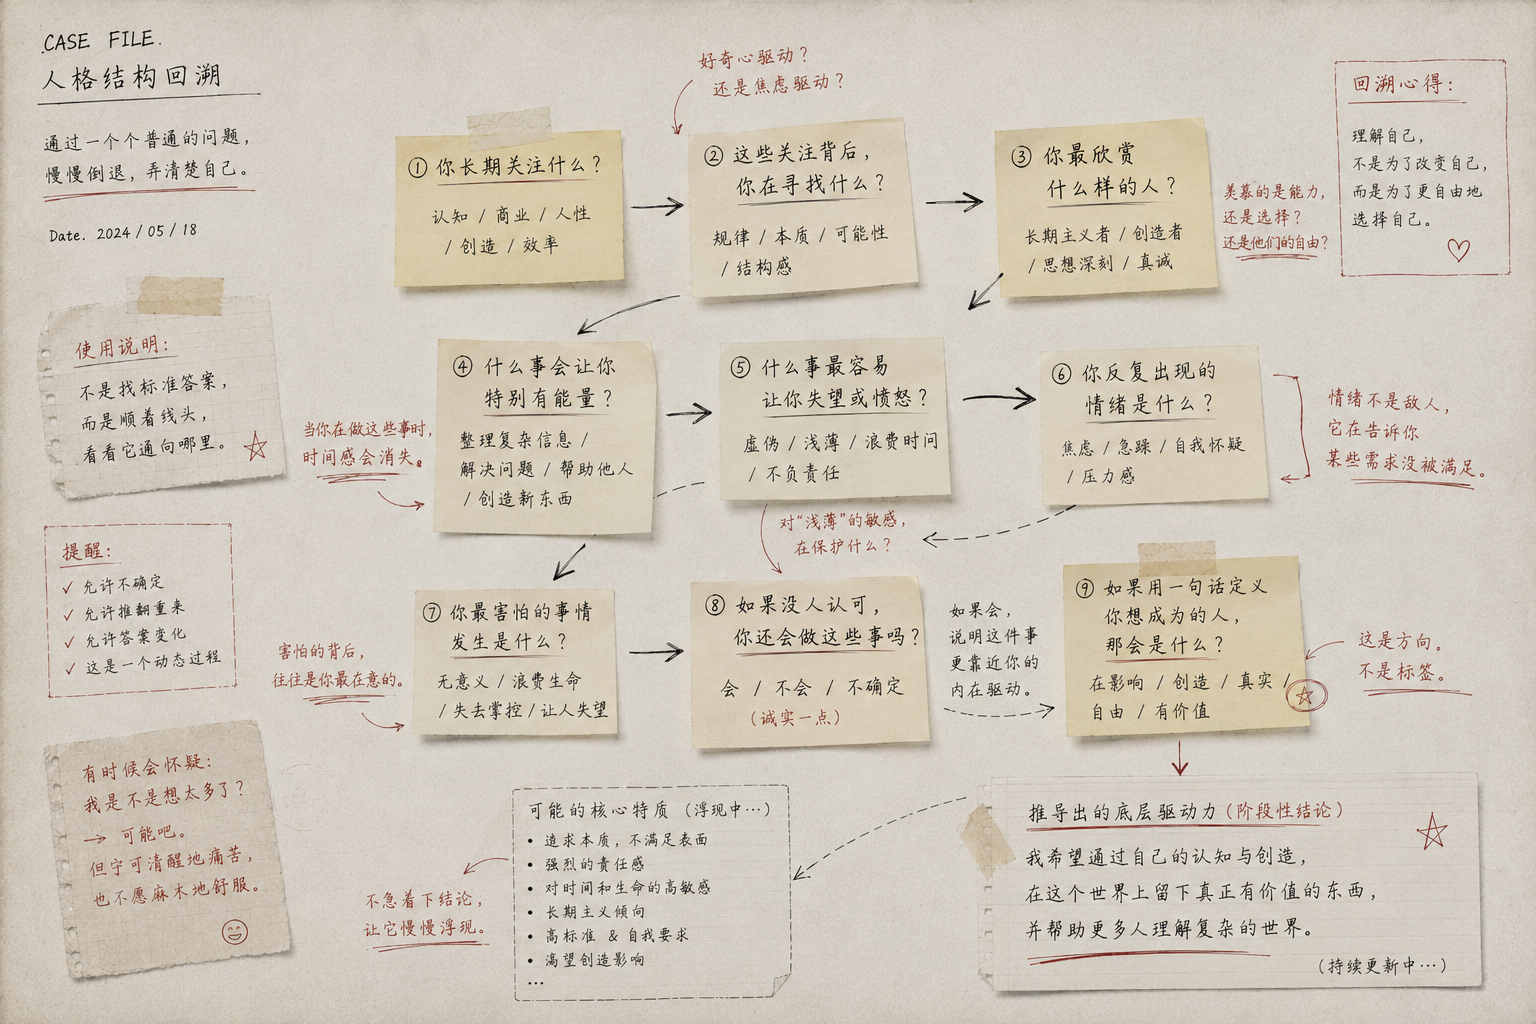 CASE FILE.
人格结构回溯
通过一个个普通的问题，
慢慢倒退，弄清楚自己。
Date. 2024 / 05 / 18
使用说明：
不是找标准答案，
而是顺着线头，
看看它通向哪里。
提醒：
✓ 允许不确定
✓ 允许推翻重来
✓ 允许答案变化
✓ 这是一个动态过程
有时候会怀疑：
我是不是想太多了？
→ 可能吧。
但宁可清醒地痛苦，
也不愿麻木地舒服。
好奇心驱动？
还是焦虑驱动？
① 你长期关注什么？
认知 / 商业 / 人性
/ 创造 / 效率
② 这些关注背后，
你在寻找什么？
规律 / 本质 / 可能性
/ 结构感
③ 你最欣赏
什么样的人？
长期主义者 / 创造者
/ 思想深刻 / 真诚
羡慕的是能力，
还是选择？
还是他们的自由？
回溯心得：
理解自己，
不是为了改变自己，
而是为了更自由地
选择自己。
当你在做这些事时，
时间感会消失。
④ 什么事会让你
特别有能量？
整理复杂信息 /
解决问题 / 帮助他人
/ 创造新东西
⑤ 什么事最容易
让你失望或愤怒？
虚伪 / 浅薄 / 浪费时间
/ 不负责任
对“浅薄”的敏感，
在保护什么？
⑥ 你反复出现的
情绪是什么？
焦虑 / 急躁 / 自我怀疑
/ 压力感
情绪不是敌人，
它在告诉你
某些需求没被满足。
害怕的背后，
往往是你最在意的。
⑦ 你最害怕的事情
发生是什么？
无意义 / 浪费生命
/ 失去掌控 / 让人失望
⑧ 如果没人认可，
你还会做这些事吗？
会 / 不会 / 不确定
（诚实一点）
如果会，
说明这件事
更靠近你的
内在驱动。
⑨ 如果用一句话定义
你想成为的人，
那会是什么？
在影响 / 创造 / 真实 /
自由 / 有价值
这是方向。
不是标签。
不急着下结论，
让它慢慢浮现。
可能的核心特质（浮现中…）
• 追求本质，不满足表面
• 强烈的责任感
• 对时间和生命的高敏感
• 长期主义倾向
• 高标准 & 自我要求
• 渴望创造影响
…
推导出的底层驱动力（阶段性结论）
我希望通过自己的认知与创造，
在这个世界上留下真正有价值的东西，
并帮助更多人理解复杂的世界。
（持续更新中…）